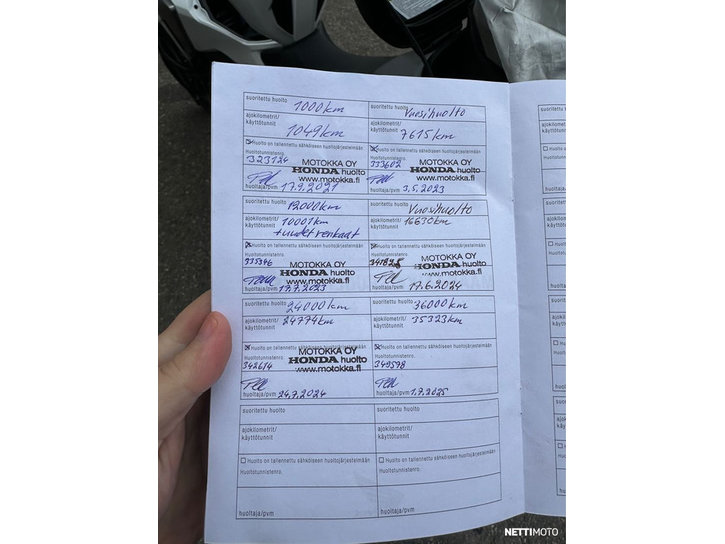 suoritettu huolto 1000km
ajokilometrit/
käyttötunnit 1049km
Huolto on tallennettu sähköiseen huoltojärjestelmään
Huoltotunnistenro.
323124
MOTOKKA OY
HONDA huolto
www.motokka.fi
huoltaja/pvm 17.9.2021
suoritettu huolto Vuosihuolto
ajokilometrit/
käyttötunnit 7615km
Huolto on tallennettu sähköiseen huoltojärjestelmään
Huoltotunnistenro.
333602
MOTOKKA OY
HONDA huolto
www.motokka.fi
huoltaja/pvm 3.5.2023
suoritettu huolto 12000km
ajokilometrit/
käyttötunnit 10001km
+uudet renkaat
Huolto on tallennettu sähköiseen huoltojärjestelmään
Huoltotunnistenro.
335346
MOTOKKA OY
HONDA huolto
www.motokka.fi
huoltaja/pvm 17.7.2023
suoritettu huolto Vuosihuolto
ajokilometrit/
käyttötunnit 16630km
Huolto on tallennettu sähköiseen huoltojärjestelmään
Huoltotunnistenro.
MOTOKKA OY
HONDA huolto
www.motokka.fi
huoltaja/pvm 17.6.2024
suoritettu huolto 24000km
ajokilometrit/
käyttötunnit 24774km
Huolto on tallennettu sähköiseen huoltojärjestelmään
Huoltotunnistenro.
342614
MOTOKKA OY
HONDA huolto
www.motokka.fi
huoltaja/pvm 24.7.2024
suoritettu huolto 36000km
ajokilometrit/
käyttötunnit 35323km
Huolto on tallennettu sähköiseen huoltojärjestelmään
Huoltotunnistenro.
349598
huoltaja/pvm 1.7.2025
suoritettu huolto
ajokilometrit/
käyttötunnit
Huolto on tallennettu sähköiseen huoltojärjestelmään
Huoltotunnistenro.
huoltaja/pvm
suoritettu huolto
ajokilometrit/
käyttötunnit
Huolto on tallennettu sähköiseen huoltojärjestelmään
Huoltotunnistenro.
huoltaja/pvm
NETTIMOTO